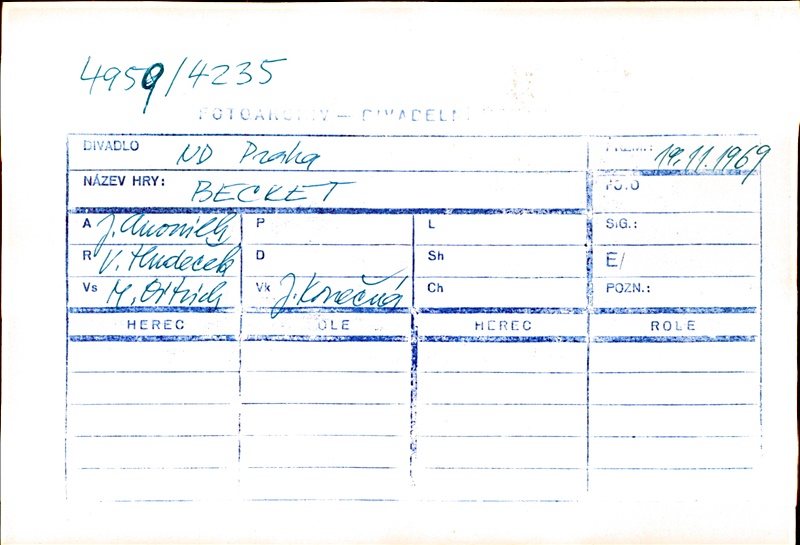 4959/4235
FOTOARCHIV — DIVADELNÍ
DIVADLO ND Praha
19.11.1969
NÁZEV HRY: BECKET
A J. P L SIG.:
R V. Hudeček D Sh E/
Vs Vk J. Konečná Ch POZN.:
HEREC ROLE HEREC ROLE